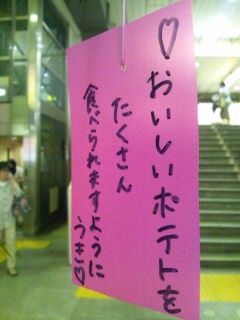 ♡おいしいポテトを
たくさん
食べられますように
うき♡